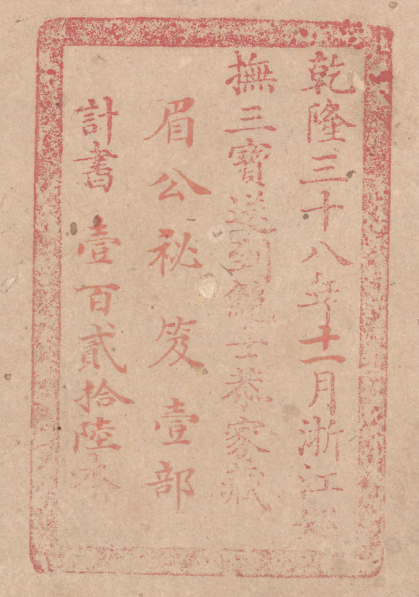 乾隆三十八年十一月浙江巡
撫三寶送到鮑士恭家藏
眉公祕笈壹部
計書壹百貳拾陸本